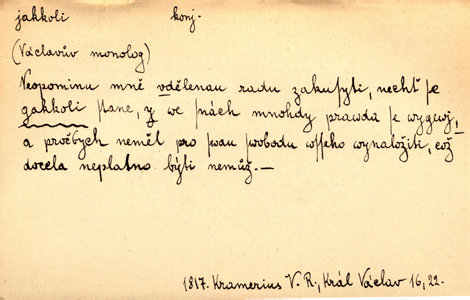 jakkoli konj.
(Václavův monolog)
Neopominu mně vdělenau radu zakusyti, nechť se
gakkoli stane, y we snách mnohdy prawda se wygewj,
a pročbych neměl pro swau swobodu wsseho wynaložiti, což
docela neplatno býti nemůž. —
1817. Kramerius V. R., Král Václav 16, 22.